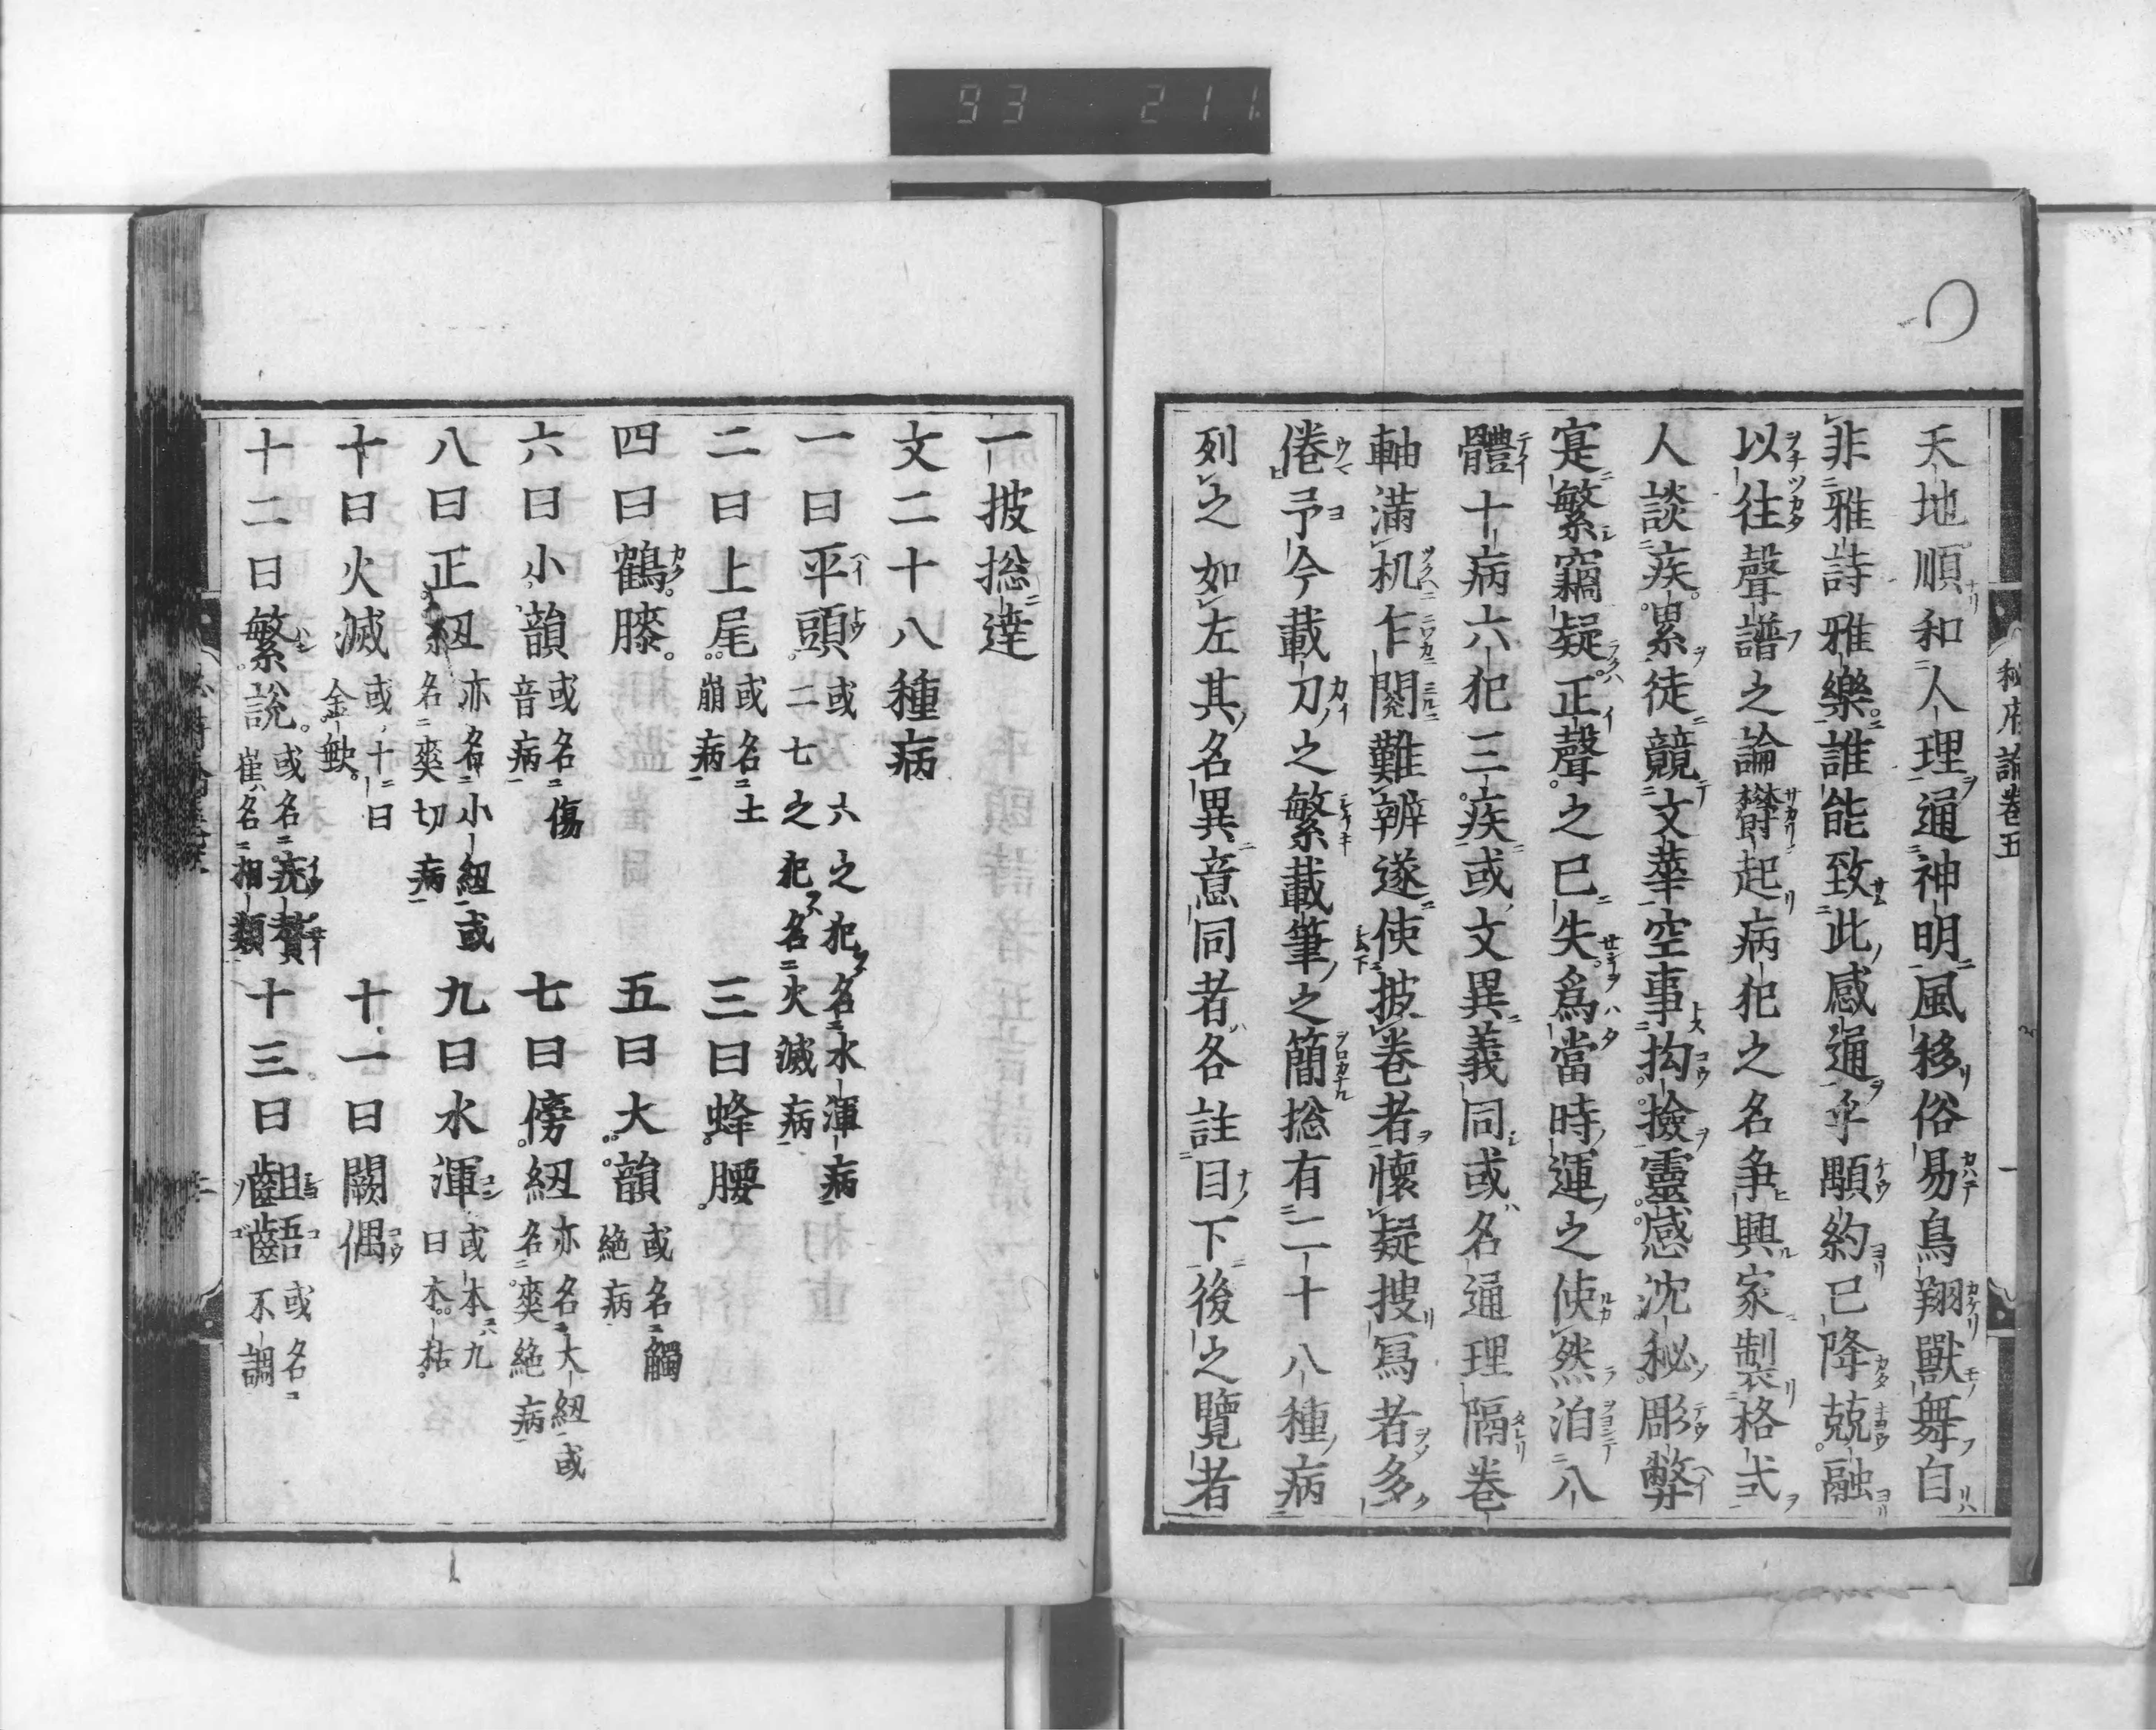 93 211
秘府論卷五 一
天地順和人理通神明風移俗易鳥翔獸舞自
非雅詩雅樂誰能致此感通乎顒約已降兢融
以往聲譜之論欝起病犯之名爭興家製格式
人談疾累徒競文華空事拘撿靈感沈秘彫弊
寔繁竊疑正聲之已失爲當時運之使然洎八
體十病六犯三疾或文異義同或名通理隔卷
軸滿机乍閱難辨遂使披卷者懷疑搜寫者多
倦予今載刀之繁載筆之簡捴有二十八種病
列之如左其名異意同者各註目下後之覽者
一披捴達
文二十八種病
一曰平頭或六之犯名水渾病
二七之犯名火滅病
二曰上尾或名土
崩病 三曰蜂腰
四曰鶴膝 五曰大韻或名觸
絶病
六曰小韻或名傷
音病 七曰傍紐亦名大紐或
名爽絶病
八曰正紐亦名小紐或
名爽切病 九曰水渾或本九
曰木枯
十曰火滅或十曰
金缺 十一曰闕偶
十二曰繁説或名疣贅
崔名相類 十三曰齟齬或名
不調